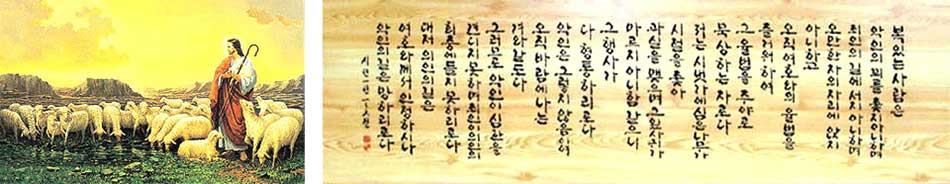 복있는사람은
악인의 꾀를 좇지아니하며
죄인의 길에 서지 아니하며
오만한자의자리에 앉지
아니하고
오직 여호와의 율법을
즐거워하여
그 율법을 주야로
묵상하는 자로다
저는 시냇가에심은나무가
시절을 좇아
과실을 맺으며 그잎사귀가
마르지 아니함 같으니
그 행사가
다 형통하리로다
악인은 그렇지 않음이여
오직 바람에 나는
겨와같도다
그러므로 악인이 심판을
견디지 못하며 죄인이 의인의
회중에 들지 못하리로다
대저 의인의 길은
여호와께서 인정하시나
악인의 길은 망하리로다